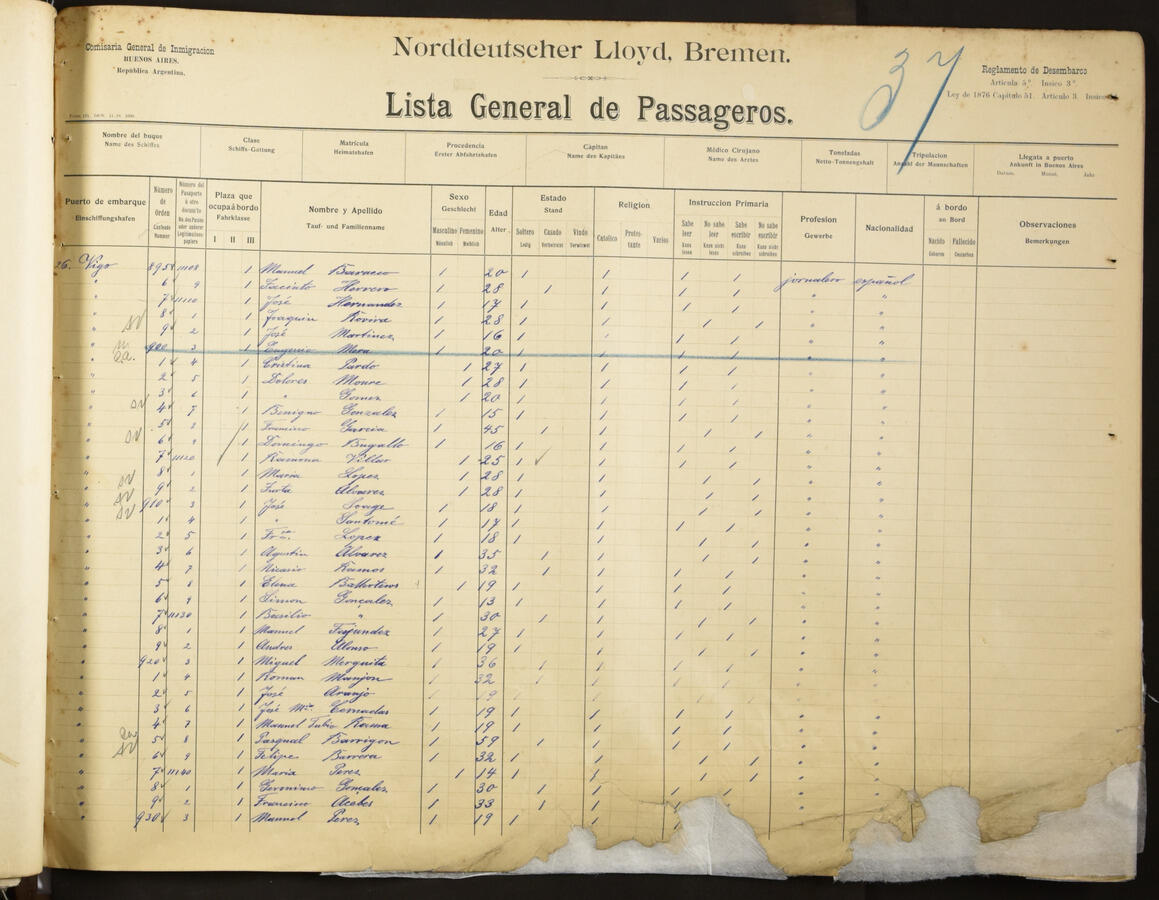 Comisaria General de Inmigracion
BUENOS AIRES.
República Argentina.
Norddeutscher Lloyd, Bremen.
Lista General de Passageros.
37
Reglamento de Desembarco
Articula 5º. Insico 3º.
Ley de 1876 Capitulo 51. Articulo 3.
Nombre del buque
Name des Schiffes
Clase
Schiffs-Gattung
Matricula
Heimatshafen
Procedencia
Erster Abfahrtshafen
Cápitan
Name des Kapitäns
Médico Cirujano
Name des Arztes
Toneladas
Netto-Tonnengehalt
Tripulacion
Anzahl der Mannschaften
Llegata a puerto
Ankunft in Buenos Aires
Datum. Monat. Jahr
Puerto de embarque
Einschiffungshafen
Número de Orden
Plaza que ocupa á bordo
Fahrklasse
I II III
Nombre y Apellido
Tauf- und Familienname
Sexo
Geschlecht
Masculino Femenino
Männlich Weiblich
Edad
Alter
Estado
Stand
Soltero Casado Viudo
Ledig Verheiratet Verwitwet
Religion
Catolico Protestante Varios
Instruccion Primaria
Sabe leer No sabe leer Sabe escribir No sabe escribir
Kann lesen Kann nicht lesen Kann schreiben Kann nicht schreiben
Profesion
Gewerbe
Nacionalidad
á bordo
an Bord
Nacido Fallecido
Geboren Gestorben
Observaciones
Bemerkungen
26. Vigo 895 11108 1 Manuel Baracco 1 20 1 1 1 1 jornalero español
" 6 9 1 Jacinto Herrero 1 28 1 1 1 1 " "
" 7 11110 1 José Hernandez 1 17 1 1 1 1 " "
" 8 1 1 Joaquin Rovira 1 28 1 1 1 1 " "
" 9 2 1 José Martinez 1 16 1 1 1 1 " "
" 900 3 1 Eugenio Mera 1 20 1 1 1 1 " "
" 1 4 1 Cristina Pardo 1 27 1 1 1 1 " "
" 2 5 1 Dolores Moure 1 28 1 1 1 1 " "
" 3 6 1 " Gomez 1 20 1 1 1 1 " "
" 4 7 1 Benigno Gonzalez 1 15 1 1 1 1 " "
" 5 1 Francisco Garcia 1 45 1 1 1 1 " "
" 6 9 1 Domingo Bugallo 1 16 1 1 1 1 " "
" 7 11120 1 Ramona Villar 1 25 1 1 1 1 " "
" 8 1 1 Maria Lopez 1 28 1 1 1 1 " "
" 9 2 1 Alvarez 1 28 1 1 1 1 " "
" 910 3 1 José 1 18 1 1 1 1 " "
" 1 4 1 " Santomé 1 17 1 1 1 1 " "
" 2 5 1 Lopez 1 18 1 1 1 1 " "
" 3 6 1 Agustin Alvarez 1 35 1 1 1 1 " "
" 4 7 1 Nicasio Ramos 1 32 1 1 1 1 " "
" 5 8 1 Elena Ballesteros 1 19 1 1 1 1 " "
" 6 9 1 Simon Gonçalez 1 13 1 1 1 1 " "
" 7 11130 1 Basilio " 1 30 1 1 1 1 " "
" 8 1 1 Manuel Fajundez 1 27 1 1 1 1 " "
" 9 2 1 Andres Alonso 1 19 1 1 1 1 " "
" 920 3 1 Miguel Merguita 1 36 1 1 1 1 " "
" 1 4 1 Roman Manjon 1 32 1 1 1 1 " "
" 2 5 1 José Araujo 1 19 " "
" 3 6 1 José Mia. Cernadas 1 19 1 1 1 1 " "
" 4 7 1 Manuel Tubio Rama 1 19 1 1 1 1 " "
" 5 8 1 Pasqual Barrigon 1 59 1 1 1 1 " "
" 6 9 1 Felipe Barrera 1 32 1 1 1 1 " "
" 7 11140 1 Maria Perez 1 14 1 1 1 1 " "
" 8 1 1 Geronimo Gonçalez 1 30 1 1 1 1 " "
" 9 2 1 Francisco Acebes 1 33 1 1 1 1
" 930 3 1 Manuel Perez 1 19 1 1